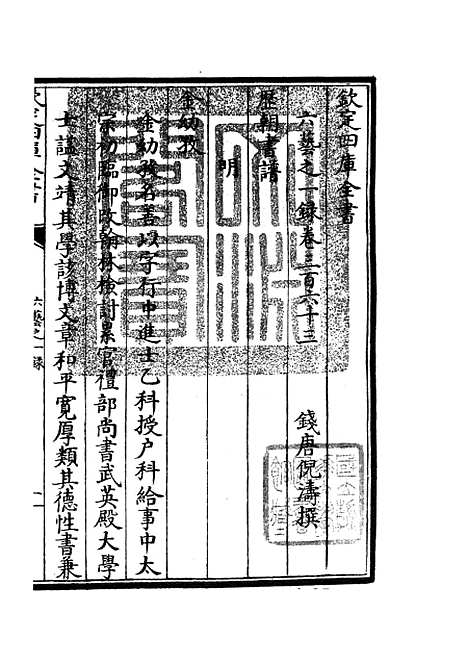 欽定四庫全書
六藝之一録卷三百六十三
錢唐倪濤撰
歴朝書譜
明
金幼孜
金幼孜名善以字行中進士乙科授户科給事中太
宗初臨御改翰林檢討累官禮部尚書武英殿大學
士諡文靖其學該博文章和平寛厚類其德性書兼
六藝之一録